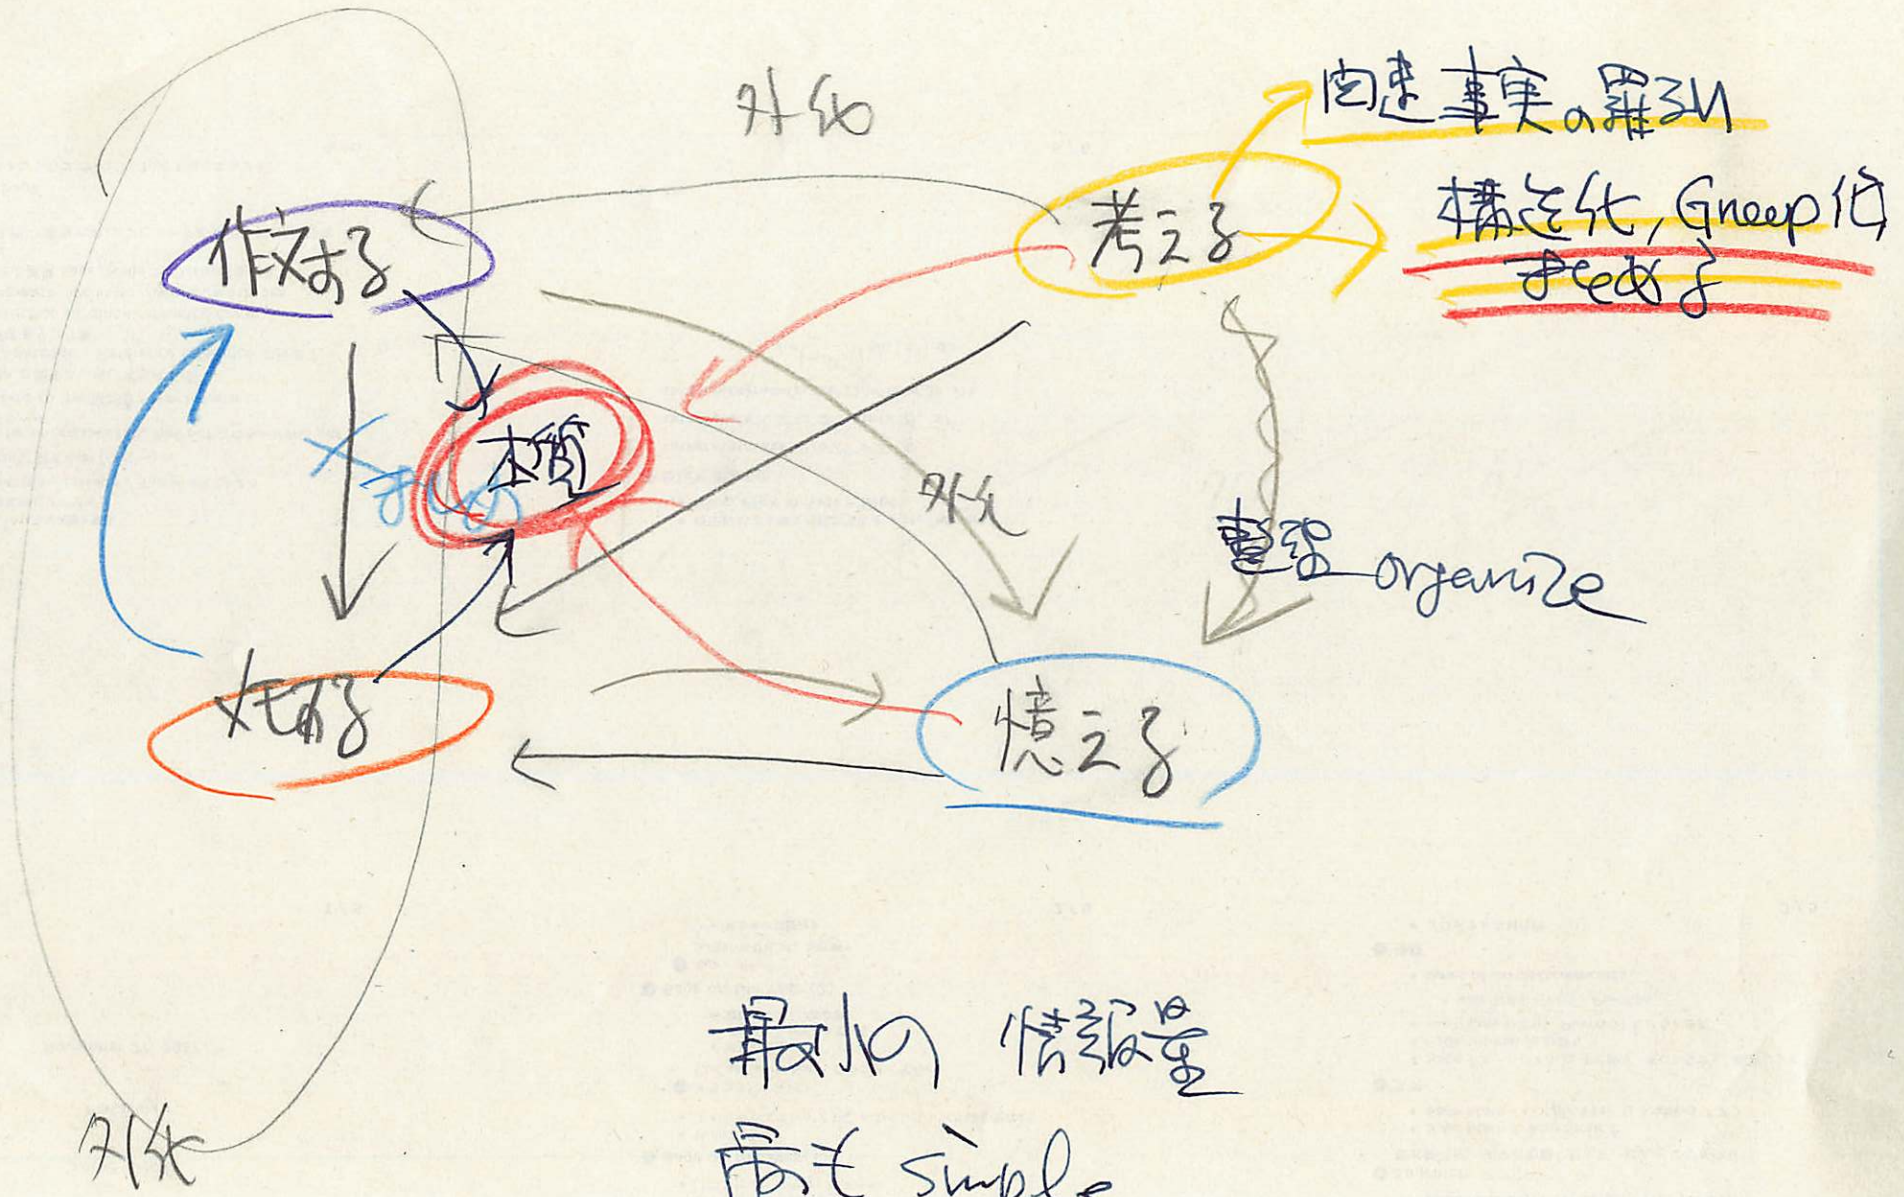 外化
関連事実の羅列
作文する
考える
構造化, Group化
まとめる
本質
まとめ
外化
整理 organize
まとめる
憶える
最小の 情報量
外化
最も simple